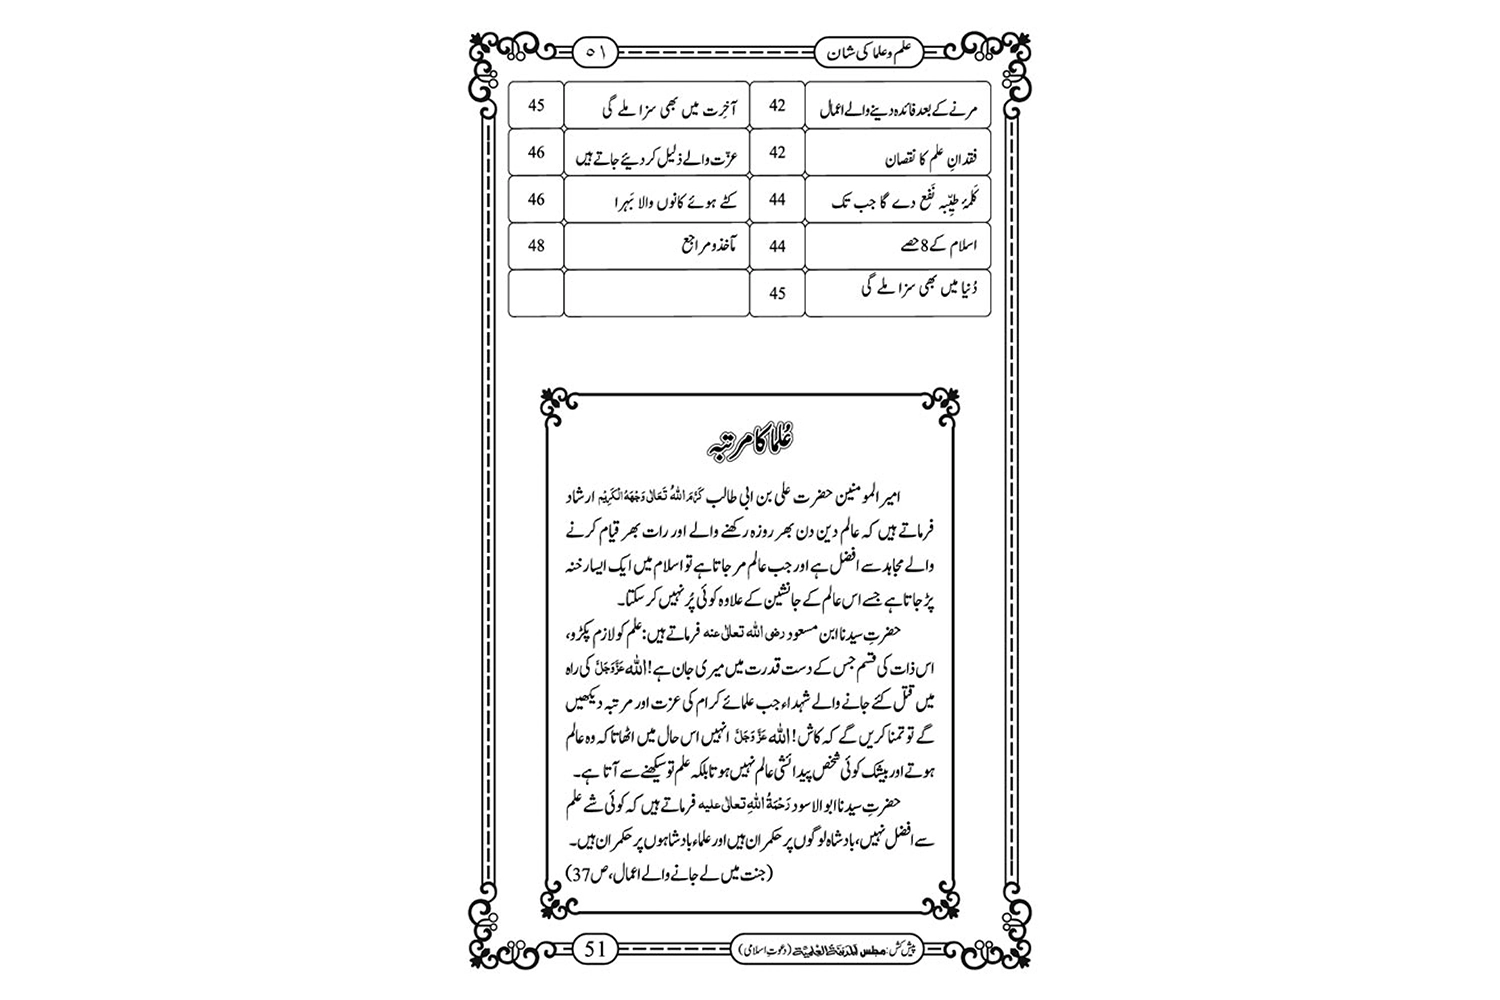 علم و علما کی شان ۵۱
مرنے کے بعد فائدہ دینے والے اعمال 42 آخِرت میں بھی سزا ملے گی 45
فقدانِ علم کا نقصان 42 عزّت والے ذلیل کر دیئے جاتے ہیں 46
کَلمۂ طیِّبہ نَفع دے گا جب تک 44 کٹے ہوئے کانوں والا بَہرا 46
اسلام کے 8 حصے 44 مآخذ و مراجع 48
دُنیا میں بھی سزا ملے گی 45
عُلما کا مرتبہ
امیر المومنین حضرت علی بن ابی طالب کَرَّمَ اللہُ تَعَالٰی وَجْهَهُ الْکَرِیْم ارشاد
فرماتے ہیں کہ عالم دین دن بھر روزہ رکھنے والے اور رات بھر قیام کرنے
والے مجاہد سے افضل ہے اور جب عالم مر جاتا ہے تو اسلام میں ایک ایسا رخنہ
پڑ جاتا ہے جسے اس عالم کے جانشین کے علاوہ کوئی پُر نہیں کر سکتا۔
حضرتِ سیدنا ابن مسعود رضی اللہ تعالٰی عنہ فرماتے ہیں: علم کو لازم پکڑو،
اس ذات کی قسم جس کے دست قدرت میں میری جان ہے! اللہ عَزَّوَجَلَّ کی راہ
میں قتل کئے جانے والے شہداء جب علمائے کرام کی عزت اور مرتبہ دیکھیں
گے تو تمنا کریں گے کہ کاش! اللہ عَزَّوَجَلَّ انہیں اس حال میں اٹھاتا کہ وہ عالم
ہوتے اور بیشک کوئی شخص پیدائشی عالم نہیں ہوتا بلکہ علم تو سیکھنے سے آتا ہے۔
حضرتِ سیدنا ابو الاسود رَحْمَةُ اللہِ تعالٰی علیہ فرماتے ہیں کہ کوئی شے علم
سے افضل نہیں، بادشاہ لوگوں پر حکمران ہیں اور علماء بادشاہوں پر حکمران ہیں۔
(جنت میں لے جانے والے اعمال، ص37)
پیش کش: مجلس المدینۃ العلمیۃ (دعوتِ اسلامی) 51